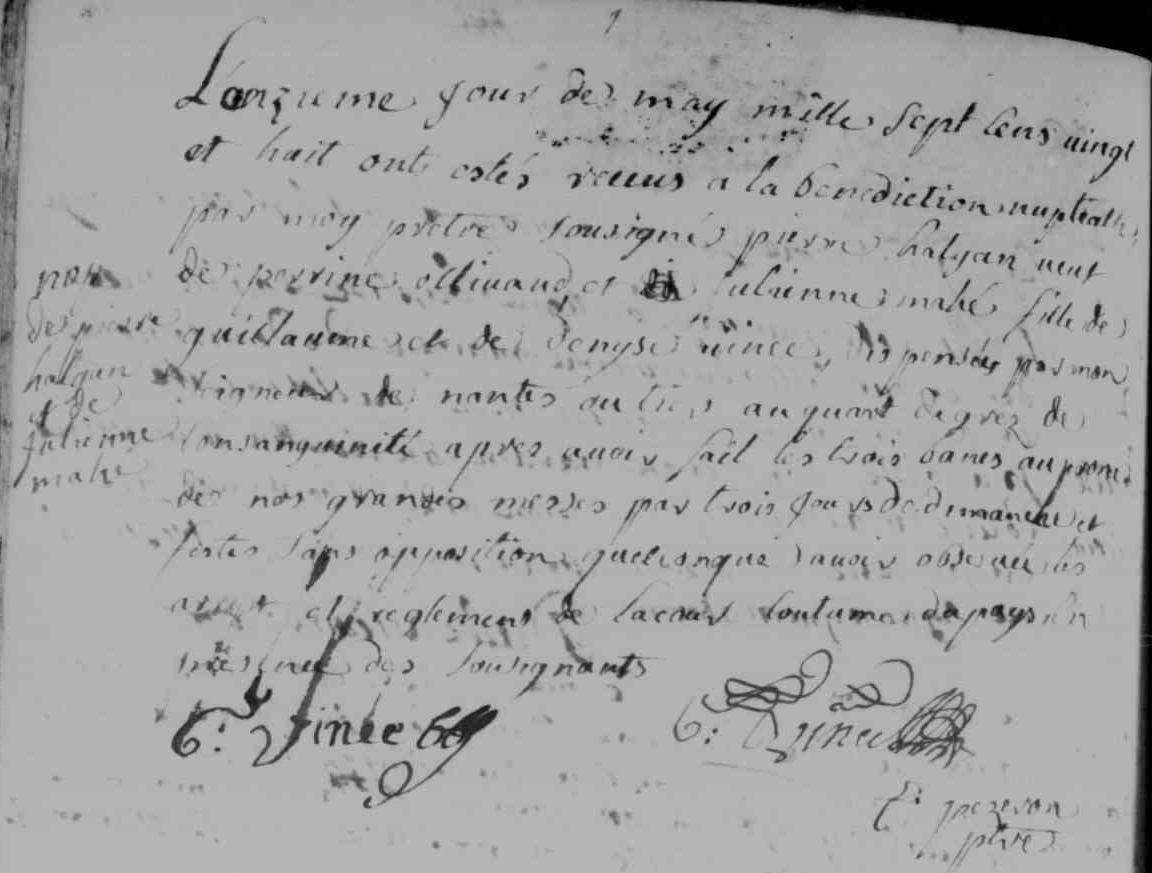 L'onzieme jour de may mille sept cens vingt
et huit ont estés receus a la benediction nuptialle
par moy prêtre sousigné pierre halgan veuf
de perrine ollivaud et julienne mahé fille de
guillaume et de denyse vince, dispensés par mon
seigneur de nantes du tiers au quart degrez de
consanguinité apres avoir fait les trois banes au prone
de nos grandes messes par trois jours de dimanche et
festes sans opposition quelconque avoir observé les
arest et reglements de la cour coutume du pays en
presence des sousignants
nop
de pierre
halgan
et de
julienne
mahe
G: Vince
G:
E: pezeron
ptre